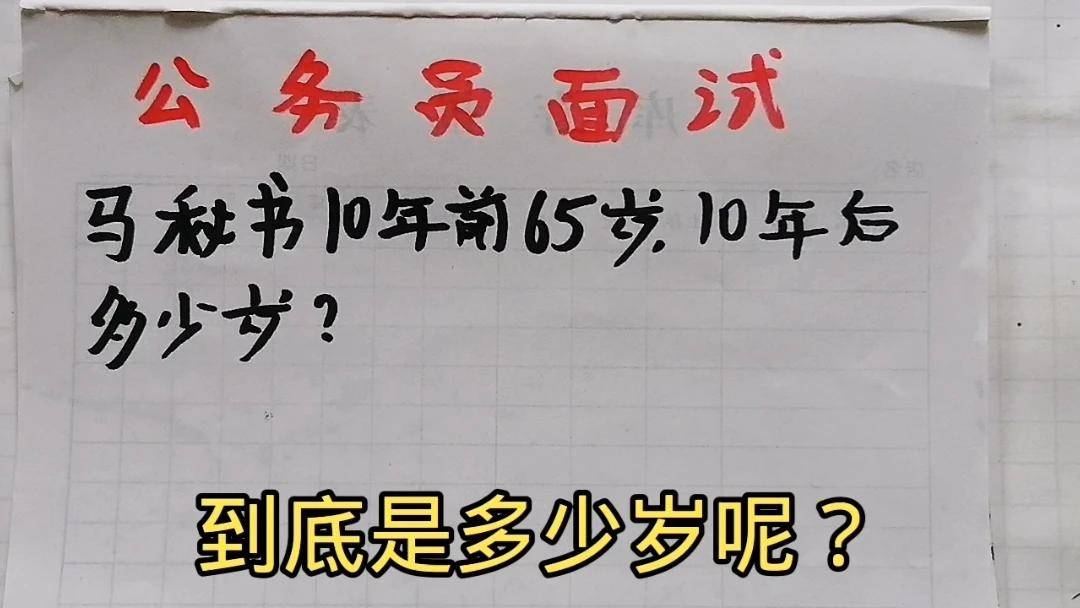 公务员面试
马秘书10年前65岁,10年后
多少岁?
到底是多少岁呢？